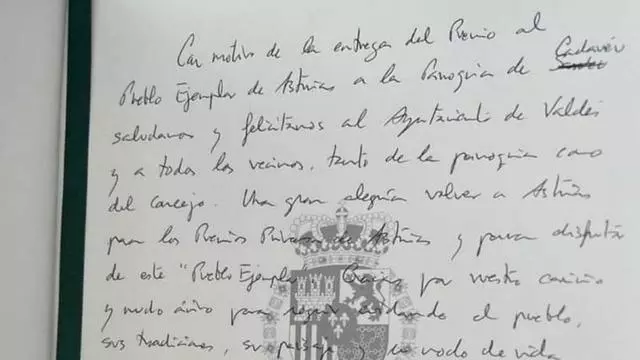 Con motivo de la entrega del Premio al
Pueblo Ejemplar de Asturias a la Parroquia de Cadavéu
saludamos y felicitamos al Ayuntamiento de Valdés
y a todos los vecinos, tanto de la parroquia como
del concejo. Una gran alegría volver a Asturias
para los Premios Princesa de Asturias y para disfrutar
de este "Pueblo Ejemplar". Gracias por vuestro cariño
y mucho ánimo para seguir cuidando el pueblo,
sus tradiciones, su paisaje y su modo de vida